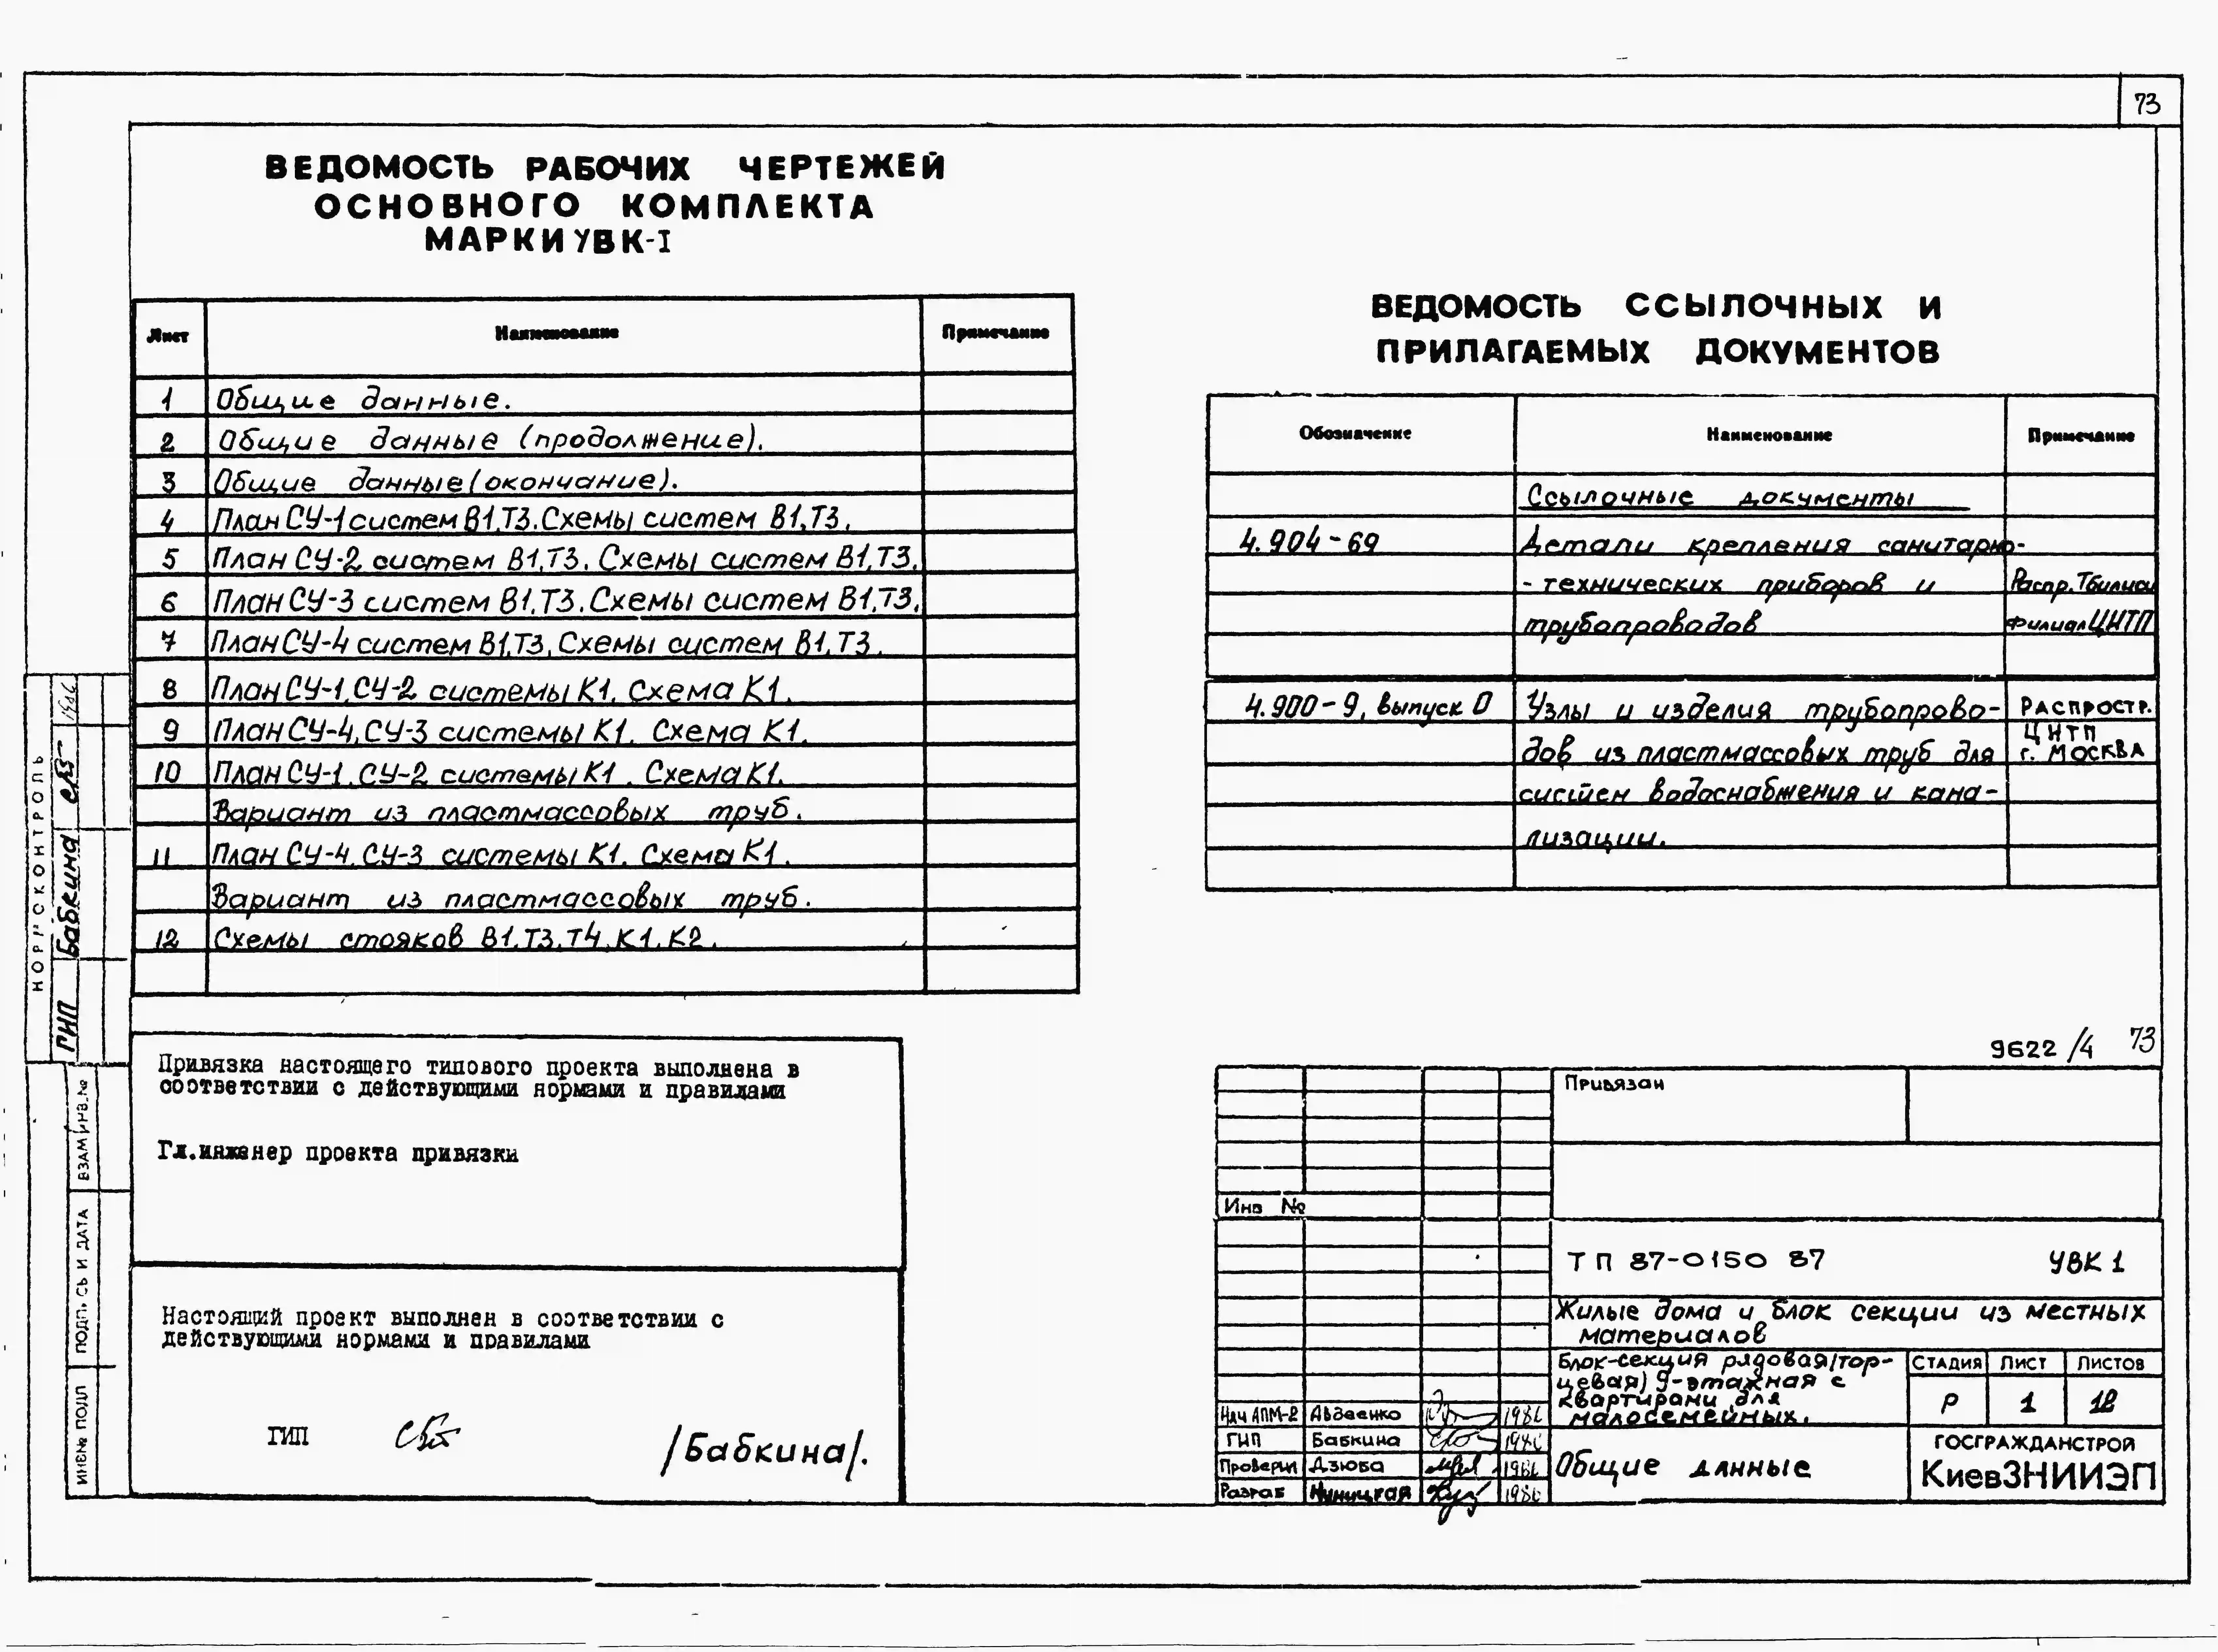 73
ВЕДОМОСТЬ РАБОЧИХ ЧЕРТЕЖЕЙ
ОСНОВНОГО КОМПЛЕКТА
МАРКИ УВК-I
Лист Наименование Примечание
1 Общие данные.
2 Общие данные (продолжение).
3 Общие данные (окончание).
4 План СУ-1 систем В1,Т3. Схемы систем В1,Т3.
5 План СУ-2 систем В1,Т3. Схемы систем В1,Т3.
6 План СУ-3 систем В1,Т3. Схемы систем В1,Т3.
7 План СУ-4 систем В1,Т3. Схемы систем В1,Т3.
8 План СУ-1, СУ-2 системы К1. Схема К1.
9 План СУ-4, СУ-3 системы К1. Схема К1.
10 План СУ-1, СУ-2 системы К1. Схема К1.
Вариант из пластмассовых труб.
11 План СУ-4, СУ-3 системы К1. Схема К1.
Вариант из пластмассовых труб.
12 Схемы стояков В1,Т3,Т4,К1,К2.
ВЕДОМОСТЬ ССЫЛОЧНЫХ И
ПРИЛАГАЕМЫХ ДОКУМЕНТОВ
Обозначение Наименование Примечание
Ссылочные документы
4.904-69 Детали крепления санитарно-
- технических приборов и Распр. Тбилиси
трубопроводов филиал ЦИТП
4.900-9, выпуск 0 Узлы и изделия трубопрово- РАСПРОСТР.
ЦИТП
дов из пластмассовых труб для г. МОСКВА
систем водоснабжения и кана-
лизации.
Привязка настоящего типового проекта выполнена в
соответствии с действующими нормами и правилами
Гл.инженер проекта привязки
Настоящий проект выполнен в соответствии с
действующими нормами и правилами
ГИП /Бабкина/.
НОРМОКОНТРОЛЬ
ГИП Бабкина 1986
ВЗАМ ИНВ.№
ПОДПИСЬ И ДАТА
ИНВ№ ПОДЛ
9622/4 73
Привязан
Инв №
ТП 87-0150 87 УВК 1
Жилые дома и блок секции из местных
материалов
Блок-секция рядовая(тор-
цевая) 9-этажная с
квартирами для
малосемейных.
СТАДИЯ ЛИСТ ЛИСТОВ
Р 1 12
Нач АПМ-2 Авдеенко 1986
ГИП Бабкина 1986
Проверил Дзюба 1986
Разраб 1986
Общие данные
ГОСГРАЖДАНСТРОЙ
КиевЗНИИЭП